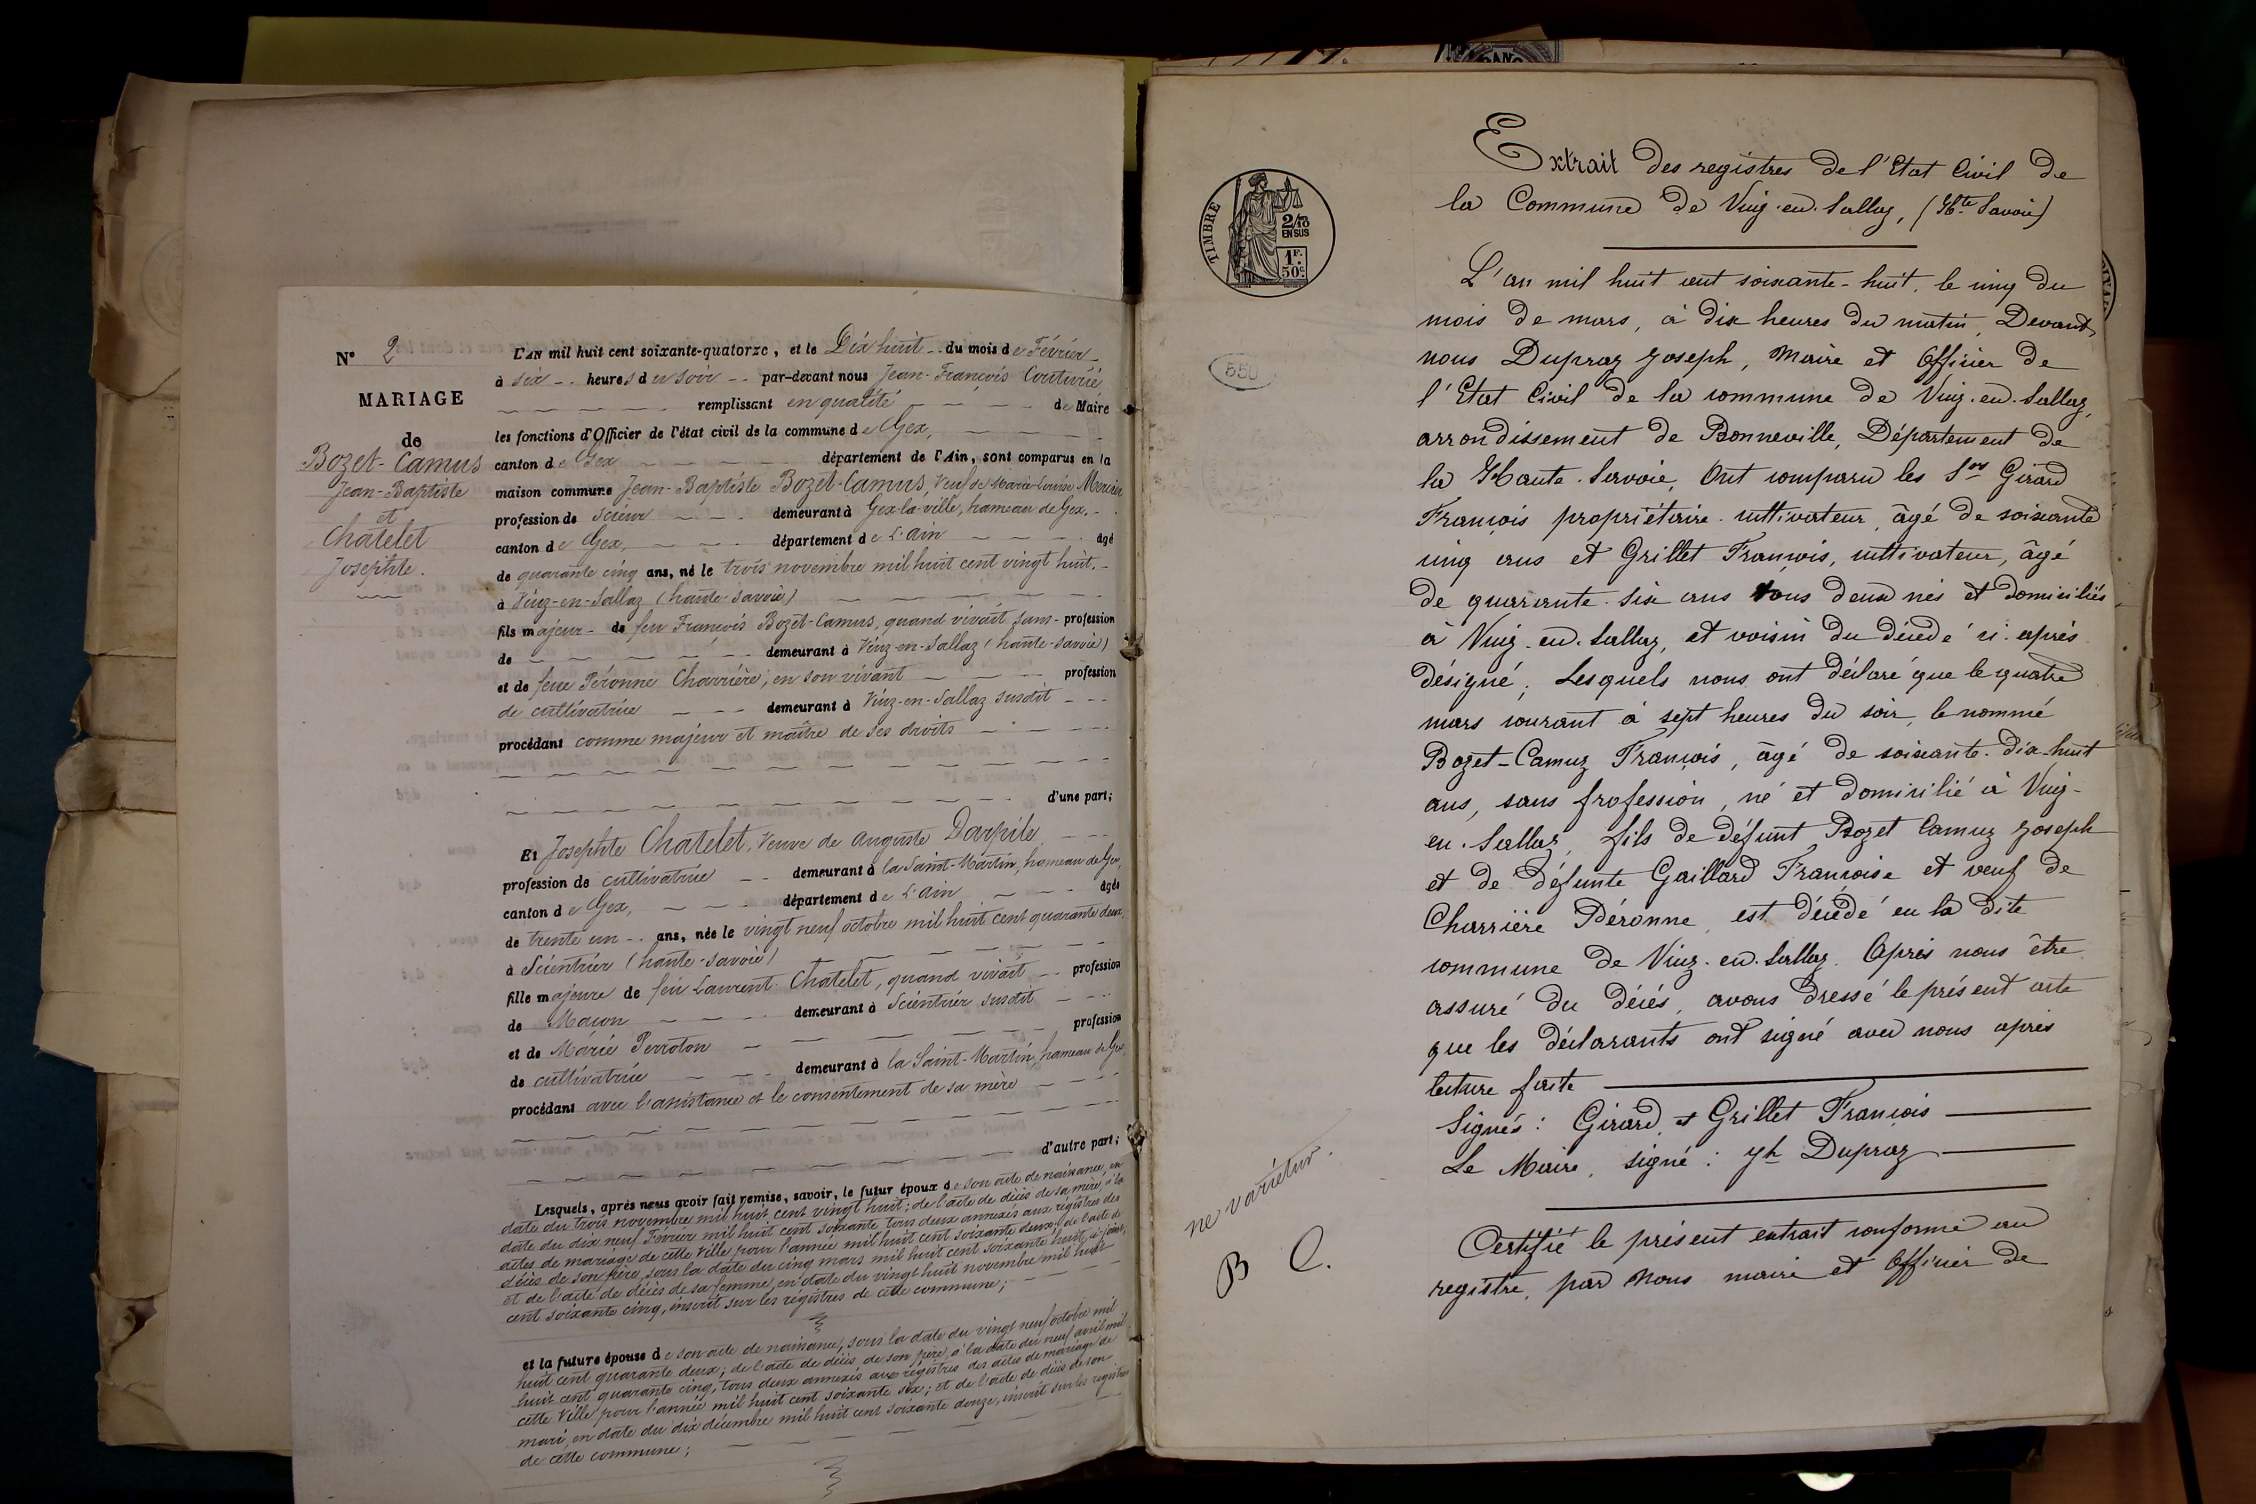 N° 2
MARIAGE
de
Bozet-Camus
Jean-Baptiste
et
Chatelet
Josephte.
L'AN mil huit cent soixante-quatorze, et le Dix huit du mois de Février
à six heures du soir par-devant nous Jean-François Couturié
remplissant en qualité de Maire
les fonctions d'Officier de l'état civil de la commune de Gex,
canton de Gex département de l'Ain, sont comparus en la
maison commune Jean-Baptiste Bozet-Camus, Veuf de Marie-Louise Mercier
profession de scieur demeurant à Gex-la-ville, hameau de Gex,
canton de Gex, département de L'Ain âgé
de quarante cinq ans, né le trois novembre mil huit cent vingt huit,
à Viuz-en-Sallaz (haute-savoie)
fils majeur de feu François Bozet-Camus, quand vivait sans profession
de demeurant à Viuz-en-Sallaz (haute-savoie)
et de feue Péronne Charrière, en son vivant profession
de cultivatrice demeurant à Viuz-en-Sallaz susdit
procédant comme majeur et maître de ses droits
d'une part;
Et Josephte Chatelet, Veuve de Auguste Darpile
profession de cultivatrice demeurant à la Saint-Martin, hameau de Gex,
canton de Gex, département de L'Ain âgée
de trente un ans, née le vingt neuf octobre mil huit cent quarante deux,
à Scientrier (haute-savoie)
fille majeure de feu Laurent Chatelet, quand vivait profession
de Maçon demeurant à Scientrier susdit
et de Marie Perroton profession
de cultivatrice demeurant à la Saint-Martin, hameau de Gex,
procédant avec l'assistance et le consentement de sa mère
d'autre part;
Lesquels, après nous avoir fait remise, savoir, le futur époux de son acte de naissance, en
date du trois novembre mil huit cent vingt huit; de l'acte de décès de sa mère, à la
date du dix neuf Février mil huit cent soixante, tous deux annexés aux registres des
actes de mariage de cette Ville pour l'année mil huit cent soixante deux; de l'acte de
décès de son père, sous la date du cinq mars mil huit cent soixante huit, ci-joint,
et de l'acte de décès de sa femme, en date du vingt huit novembre mil huit
cent soixante cinq, inscrit sur les registres de cette commune;
et la future épouse de son acte de naissance, sous la date du vingt neuf octobre mil
huit cent quarante deux; de l'acte de décès de son père, à la date du neuf avril mil
huit cent quarante cinq, tous deux annexés aux registres des actes de mariage de
cette Ville pour l'année mil huit cent soixante six; et de l'acte de décès de son
mari, en date du dix décembre mil huit cent soixante douze, inscrit sur les registres
de cette commune;
TIMBRE
2/10
EN SUS
1F.
50c.
550
Extrait des registres de l'Etat Civil de
la Commune de Viuz-en-Sallaz, (Hte Savoie)
L'an mil huit cent soixante-huit, le cinq du
mois de mars, à dix heures du matin, Devant
nous Dupraz Joseph, Maire et Officier de
l'Etat Civil de la commune de Viuz-en-Sallaz,
arrondissement de Bonneville, Département de
la Haute-Savoie, Ont comparu les Srs Girard
François propriétaire-cultivateur, âgé de soixante
cinq ans et Grillet François, cultivateur, âgé
de quarante-six ans tous deux nés et domiciliés
à Viuz-en-Sallaz, et voisin du décédé ci-après
désigné; Lesquels nous ont déclaré que le quatre
mars courant à sept heures du soir, le nommé
Bozet-Camuz François, âgé de soixante-dix-huit
ans, sans profession, né et domicilié à Viuz-
en-Sallaz, fils de défunt Bozet Camuz Joseph
et de défunte Gaillard Françoise et veuf de
Charrière Péronne, est décédé en la dite
commune de Viuz-en-Sallaz. Après nous être
assuré du décès, avons dressé le présent acte
que les déclarants ont signé avec nous après
lecture faite
Signés: Girard, et Grillet François
Le Maire, signé: Jh Dupraz
ne varietur.
B C.
Certifié le présent extrait conforme au
registre, par Nous maire et Officier de